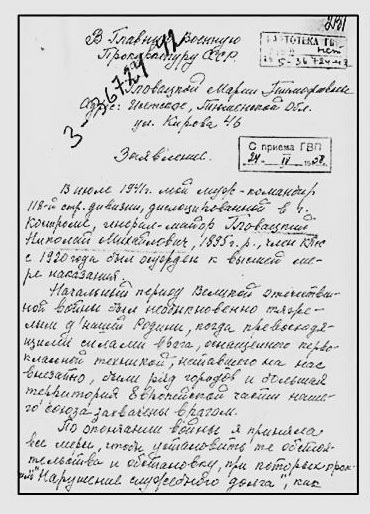 В Главную Военную
Прокуратуру СССР
З-36724-42
С приема ГВП
24 IV
Гловацкой Марии Тимофеевне
Адрес: Тюменской Обл.
ул. Кирова 46
Заявление.
В июле 1941г. мой муж-командир
118-й стр. дивизии, дислоцированной в г.
Костроме, генерал-майор Гловацкий
Николай Михайлович, 1895 г.р., член КПСС
с 1920 года был осужден к высшей ме-
ре наказания.
Начальный период Великой отечествен-
ной войны был необыкновенно тяже-
лым д нашей Родины, когда превосходя-
щими силами врага, оснащенного перво-
классной техникой, напавшего на нас
внезапно, были ряд городов и большая
территория Европейской части наше-
го Союза захвачены врагом.
По окончании войны я приняла
все меры, чтобы установить те обстоя-
тельства и обстановку, при которых
"Нарушение служебного долга", как